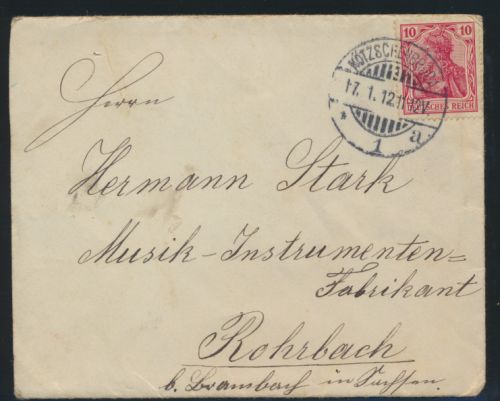 10
DEUTSCHES REICH
KÖTZSCHENBRODA
17. 1. 12.
* 1 a
Herrn
Hermann Stark
Musik-Instrumenten=
Fabrikant
Rohrbach
b. Brambach in Sachsen.